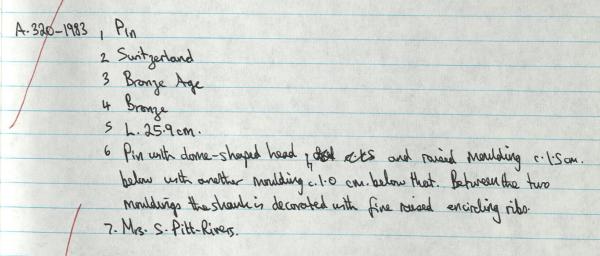 A.320-1983, 1 Pin
2 Switzerland
3 Bronze Age
4 Bronze
5 L. 25.9 cm.
6 Pin with dome-shaped head, and raised moulding c. 1.5 cm.
below with another moulding c. 1.0 cm. below that. Between the two
mouldings the shank is decorated with fine raised encircling ribs.
7. Mrs. S. Pitt-Rivers.